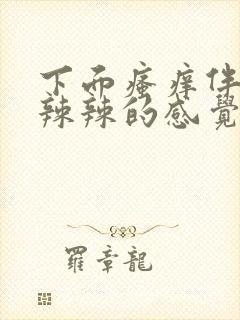 下面瘙痒伴
辣辣的感覺
羅章龍